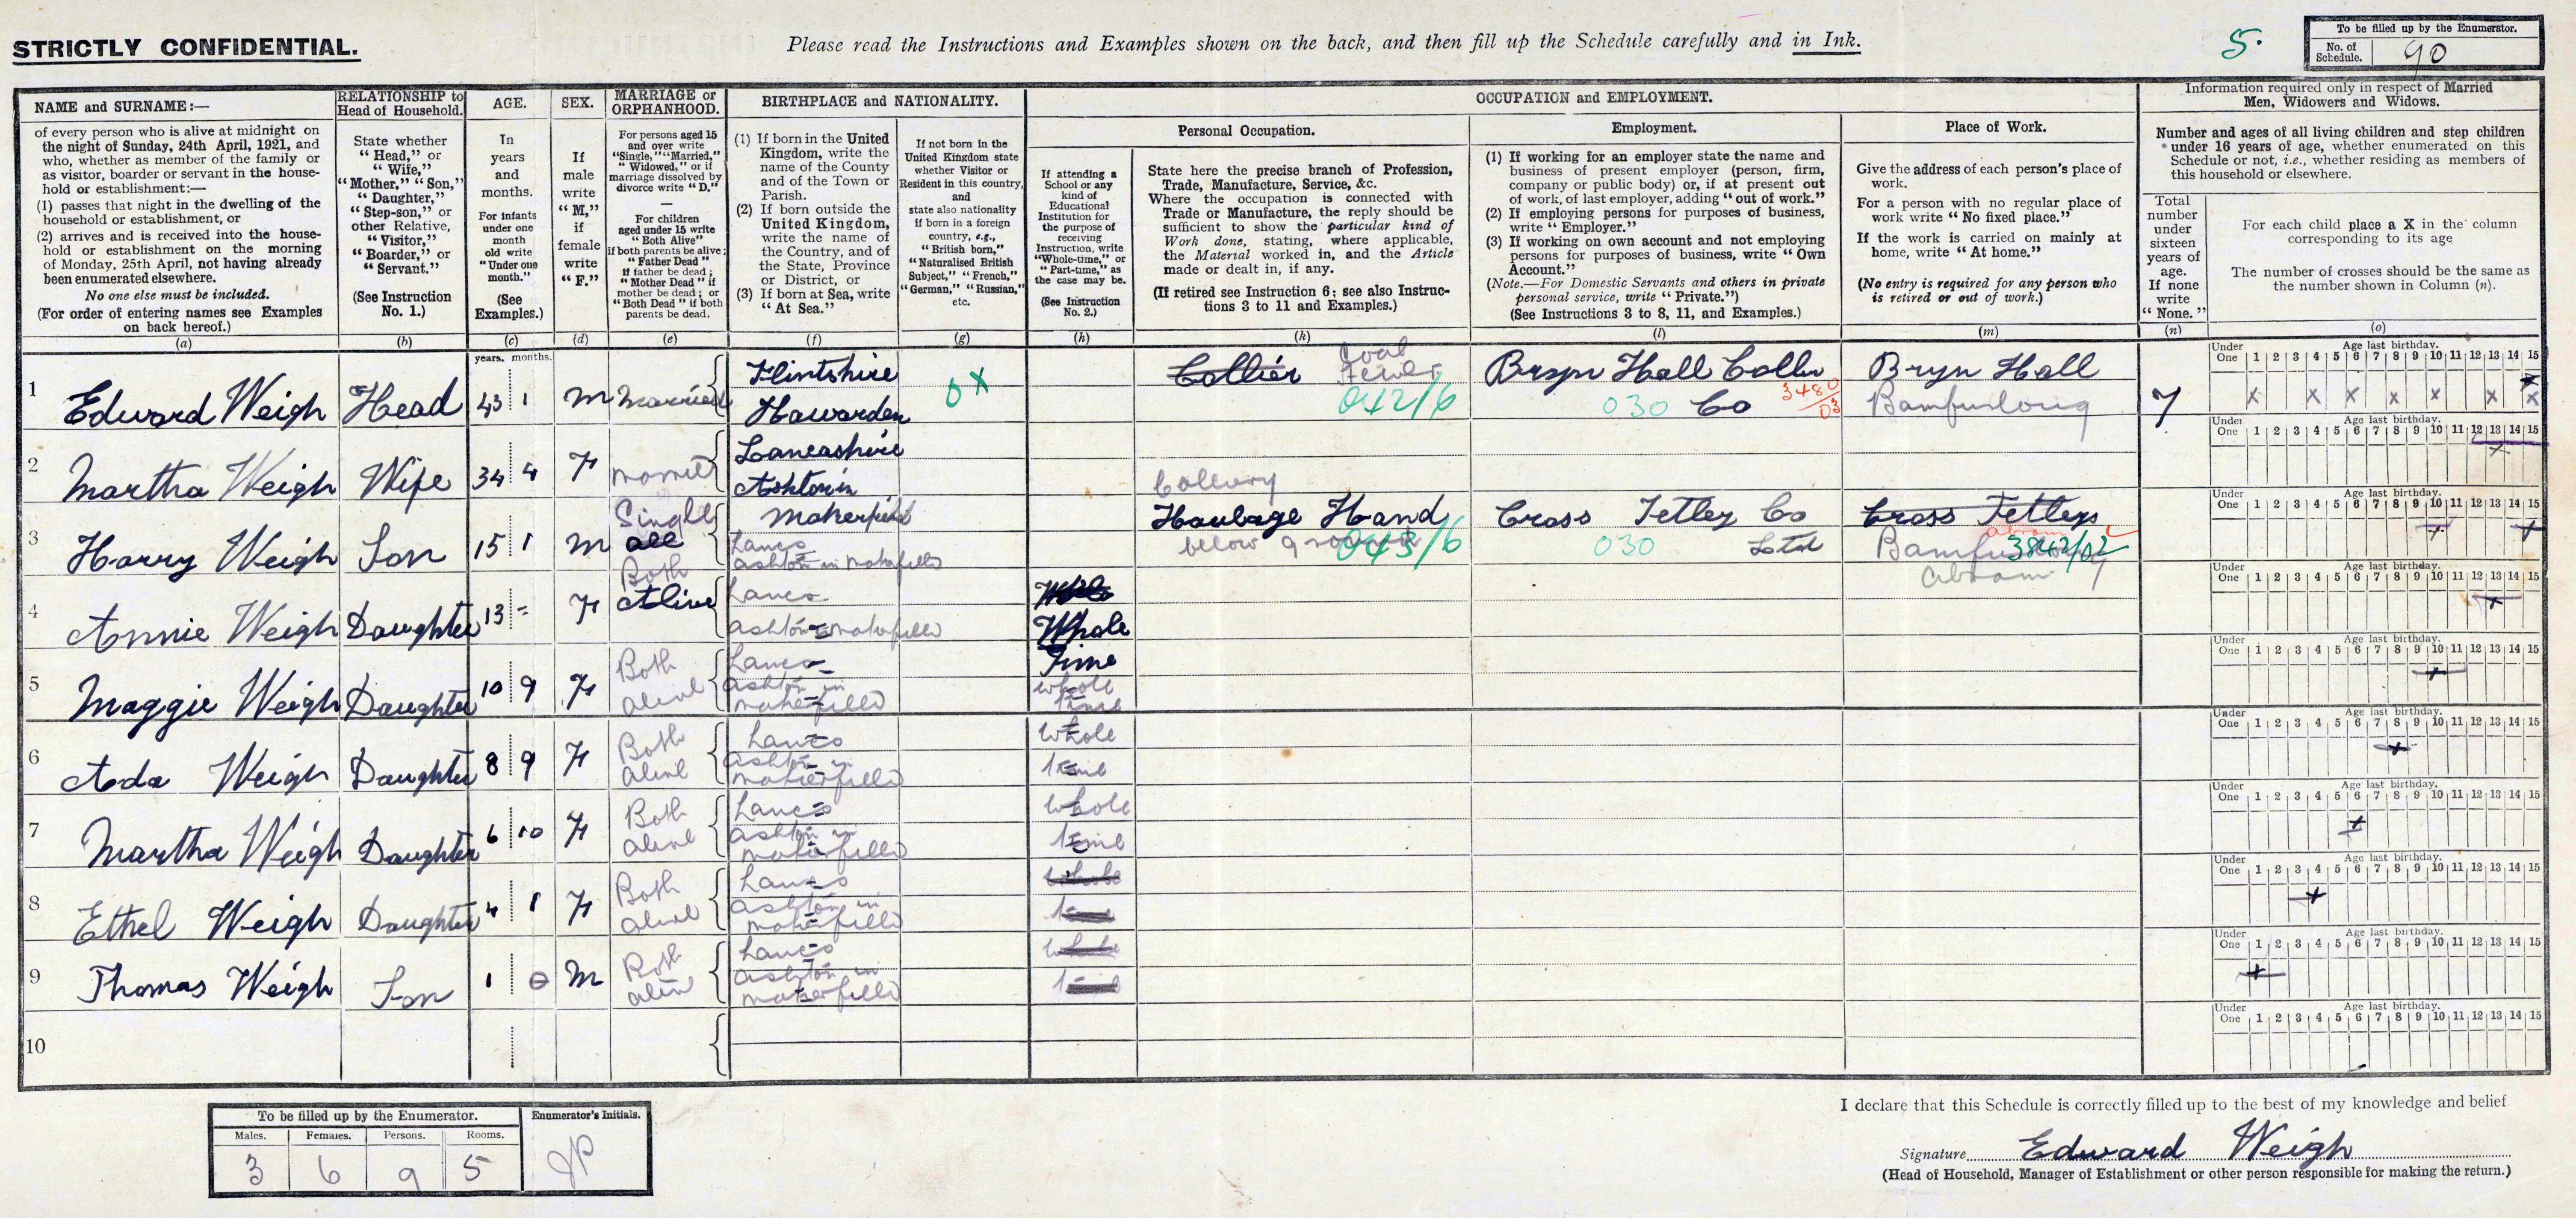 STRICTLY CONFIDENTIAL.
Please read the Instructions and Examples shown on the back, and then fill up the Schedule carefully and in Ink.
5.
To be filled up by the Enumerator.
No. of Schedule. 90
NAME and SURNAME:—
of every person who is alive at midnight on
the night of Sunday, 24th April, 1921, and
who, whether as member of the family or
as visitor, boarder or servant in the house-
hold or establishment:—
(1) passes that night in the dwelling of the
household or establishment, or
(2) arrives and is received into the house-
hold or establishment on the morning
of Monday, 25th April, not having already
been enumerated elsewhere.
No one else must be included.
(For order of entering names see Examples
on back hereof.)
(a)
RELATIONSHIP to
Head of Household.
State whether
"Head," or
"Wife,"
"Mother," "Son,"
"Daughter,"
"Step-son," or
other Relative,
"Visitor,"
"Boarder," or
"Servant."
(See Instruction
No. 1.)
(b)
AGE.
In
years
and
months.
For infants
under one
month
old write
"Under one
month."
(See
Examples.)
(c)
SEX.
If
male
write
"M,"
if
female
write
"F."
(d)
MARRIAGE or
ORPHANHOOD.
For persons aged 15
and over write
"Single," "Married,"
"Widowed," or if
marriage dissolved by
divorce write "D."
For children
aged under 15 write
"Both Alive"
if both parents be alive;
"Father Dead"
if father be dead;
"Mother Dead" if
mother be dead; or
"Both Dead" if both
parents be dead.
(e)
BIRTHPLACE and NATIONALITY.
(1) If born in the United
Kingdom, write the
name of the County
and of the Town or
Parish.
(2) If born outside the
United Kingdom,
write the name of
the Country, and of
the State, Province
or District, or
(3) If born at Sea, write
"At Sea."
(f)
If not born in the
United Kingdom state
whether Visitor or
Resident in this country,
and
state also nationality
if born in a foreign
country, e.g.,
"British born,"
"Naturalised British
Subject," "French,"
"German," "Russian,"
etc.
(g)
OCCUPATION and EMPLOYMENT.
If attending a
School or any
kind of
Educational
Institution for
the purpose of
receiving
Instruction, write
"Whole-time," or
"Part-time," as
the case may be.
(See Instruction
No. 2.)
(h)
Personal Occupation.
State here the precise branch of Profession,
Trade, Manufacture, Service, &c.
Where the occupation is connected with
Trade or Manufacture, the reply should be
sufficient to show the particular kind of
Work done, stating, where applicable,
the Material worked in, and the Article
made or dealt in, if any.
(If retired see Instruction 6; see also Instruc-
tions 3 to 11 and Examples.)
(k)
Employment.
(1) If working for an employer state the name and
business of present employer (person, firm,
company or public body) or, if at present out
of work, of last employer, adding "out of work."
(2) If employing persons for purposes of business,
write "Employer."
(3) If working on own account and not employing
persons for purposes of business, write "Own
Account."
(Note.—For Domestic Servants and others in private
personal service, write "Private.")
(See Instructions 3 to 8, 11, and Examples.)
(l)
Place of Work.
Give the address of each person's place of
work.
For a person with no regular place of
work write "No fixed place."
If the work is carried on mainly at
home, write "At home."
(No entry is required for any person who
is retired or out of work.)
(m)
Information required only in respect of Married
Men, Widowers and Widows.
Number and ages of all living children and step children
under 16 years of age, whether enumerated on this
Schedule or not, i.e., whether residing as members of
this household or elsewhere.
Total
number
under
sixteen
years of
age.
If none
write
"None."
(n)
For each child place a X in the column
corresponding to its age
The number of crosses should be the same as
the number shown in Column (n).
(o)
years. months.
Under One Age last birthday. 1 2 3 4 5 6 7 8 9 10 11 12 13 14 15
1 Edward Weigh Head 43 1 M Married Flintshire Hawarden 0X Collier Coal Hewer 042/6 Bryn Hall 030 Co 3480/03 Bryn Hall Bamfurlong 7 x x x x x x x
2 Martha Weigh Wife 34 4 F Lancashire Ashton in Makerfield
3 Harry Weigh Son 15 1 M Single all Lancs Ashton in Makerfield Colliery Haulage Hand below ground 043/6 Cross Tetley Co Ltd 030 Cross Tetleys Abram 3842/02 Abram
4 Annie Weigh Daughter 13 - F Both Alive Lancs Ashton in Makerfield Whole Time
5 Maggie Weigh Daughter 10 9 F Both alive Lancs Ashton in Makerfield whole time
6 Ada Weigh Daughter 8 9 F Both alive Lancs Ashton in Makerfield whole time
7 Martha Weigh Daughter 6 10 F Both alive Lancs Ashton in Makerfield whole time
8 Ethel Weigh Daughter 4 1 F Both alive Lancs Ashton in Makerfield whole time
9 Thomas Weigh Son 1 0 M Both alive Lancs Ashton in Makerfield whole time
10
To be filled up by the Enumerator.
Males. Females. Persons. Rooms.
3 6 9 5
Enumerator's Initials.
JP
I declare that this Schedule is correctly filled up to the best of my knowledge and belief
Signature Edward Weigh
(Head of Household, Manager of Establishment or other person responsible for making the return.)